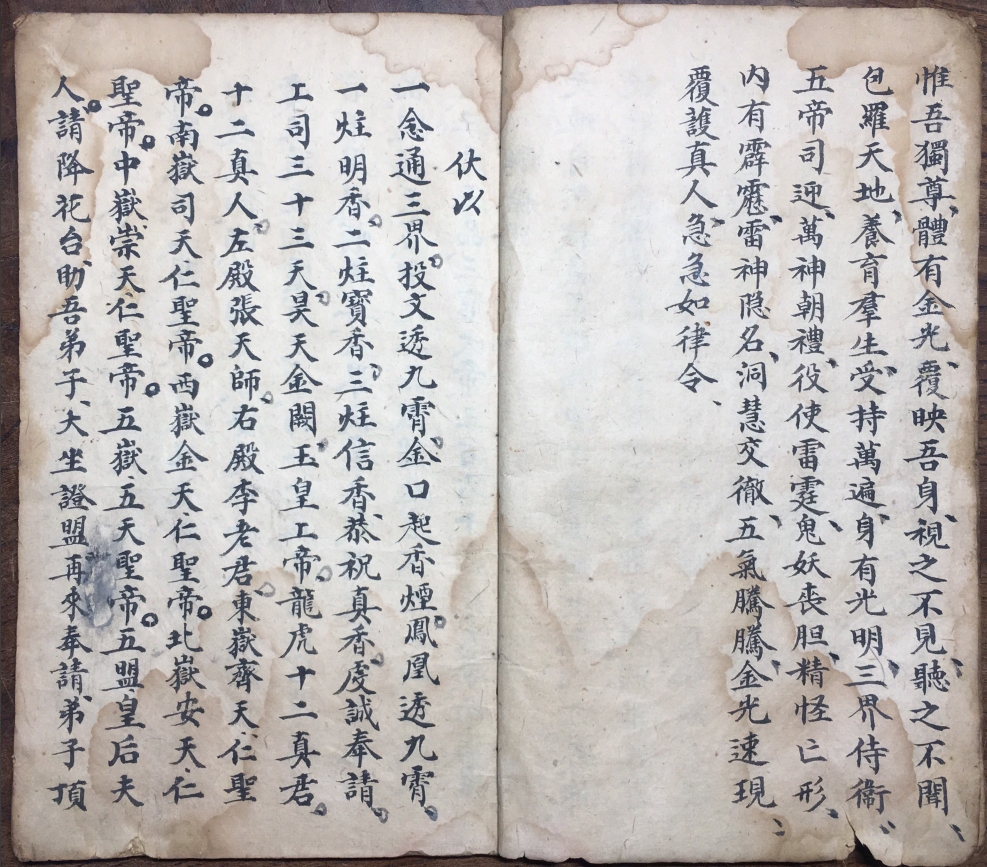 惟吾獨尊、體有金光、覆映吾身、視之不見、聽之不聞、
包羅天地、養育羣生、受持萬遍、身有光明、三界侍衛、
五帝司迎、萬神朝禮、役使雷霆、鬼妖丧胆、精怪亡形、
内有霹靂、雷神隐名、洞慧交徹、五氣騰騰、金光速現、
覆護真人、急急如律令、
伏以
一念通三界。投文透九霄。金口起香煙。鳳凰透九霄。
一炷明香。二炷寶香。三炷信香、恭祝真香、虔誠奉請。
工司三十三天。昊天金闕、玉皇工帝。龍虎十二真君。
十二真人。左殿張天師。右殿李老君。東嶽齊天仁聖
帝。南嶽司天仁聖帝。西嶽金天仁聖帝。北嶽安天仁
聖帝。中嶽崇天仁聖帝。五嶽五天聖帝。五盟皇后夫
人。請降花台、助吾弟子、大坐證盟、再來奉請、弟子頂